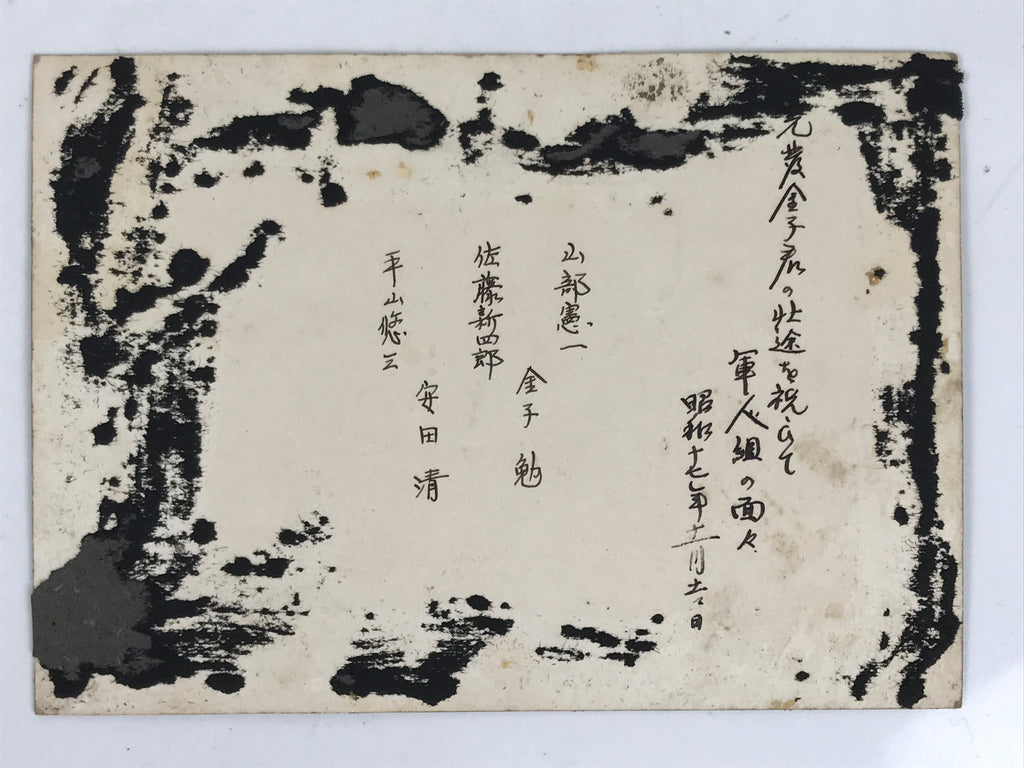 金子君の壮途を祝ひて
軍人組の面々
昭和十七年十一月十六日
山部憲一
金子勉
佐藤新四郎
安田清
平山悠三